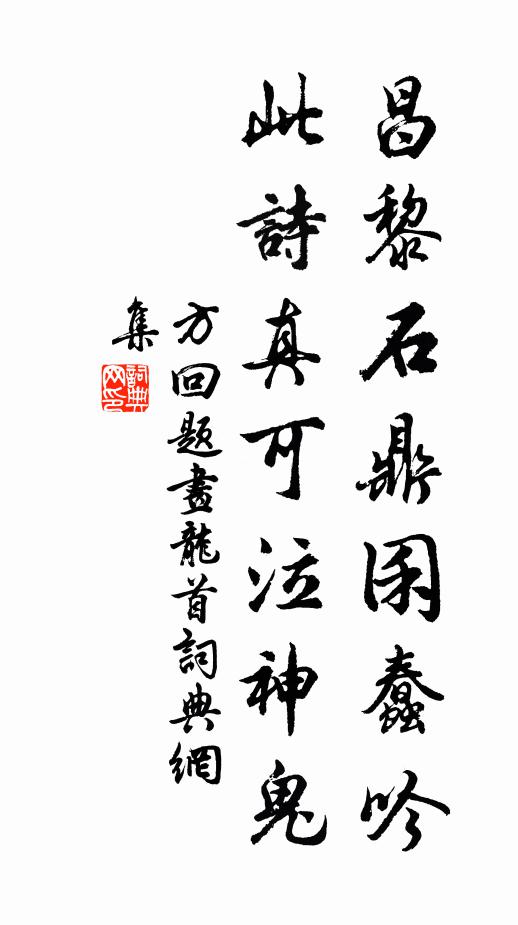 昌黎石鼎囷蠢吟
此詩真可泣神鬼
方回題畫龍首詞典網
集
詞典
网印